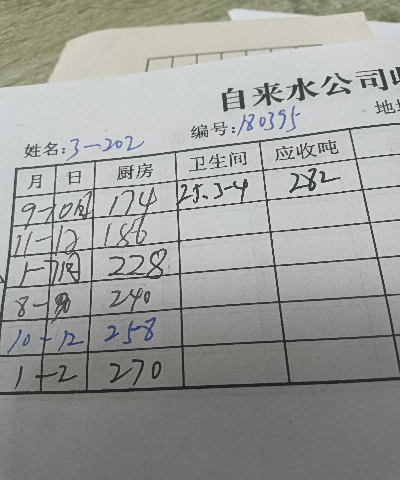 自来水公司
姓名:3-202 编号:180395 地
月 日 厨房 卫生间 应收吨
9-10月 174 25.3-4 282
11-12 186
1-7月 228
8-9 240
10-12 258
1-2 270